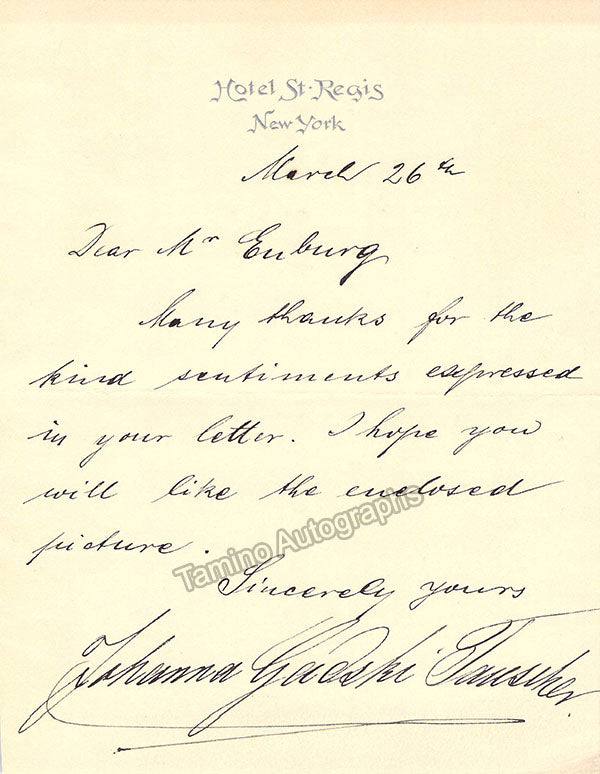 Hotel St. Regis
New York
March 26th
Dear Mr Enburg
Many thanks for the
kind sentiments expressed
in your letter. I hope you
will like the enclosed
picture.
Tamino Autographs
Sincerely yours
Johanna Gadski Tauscher